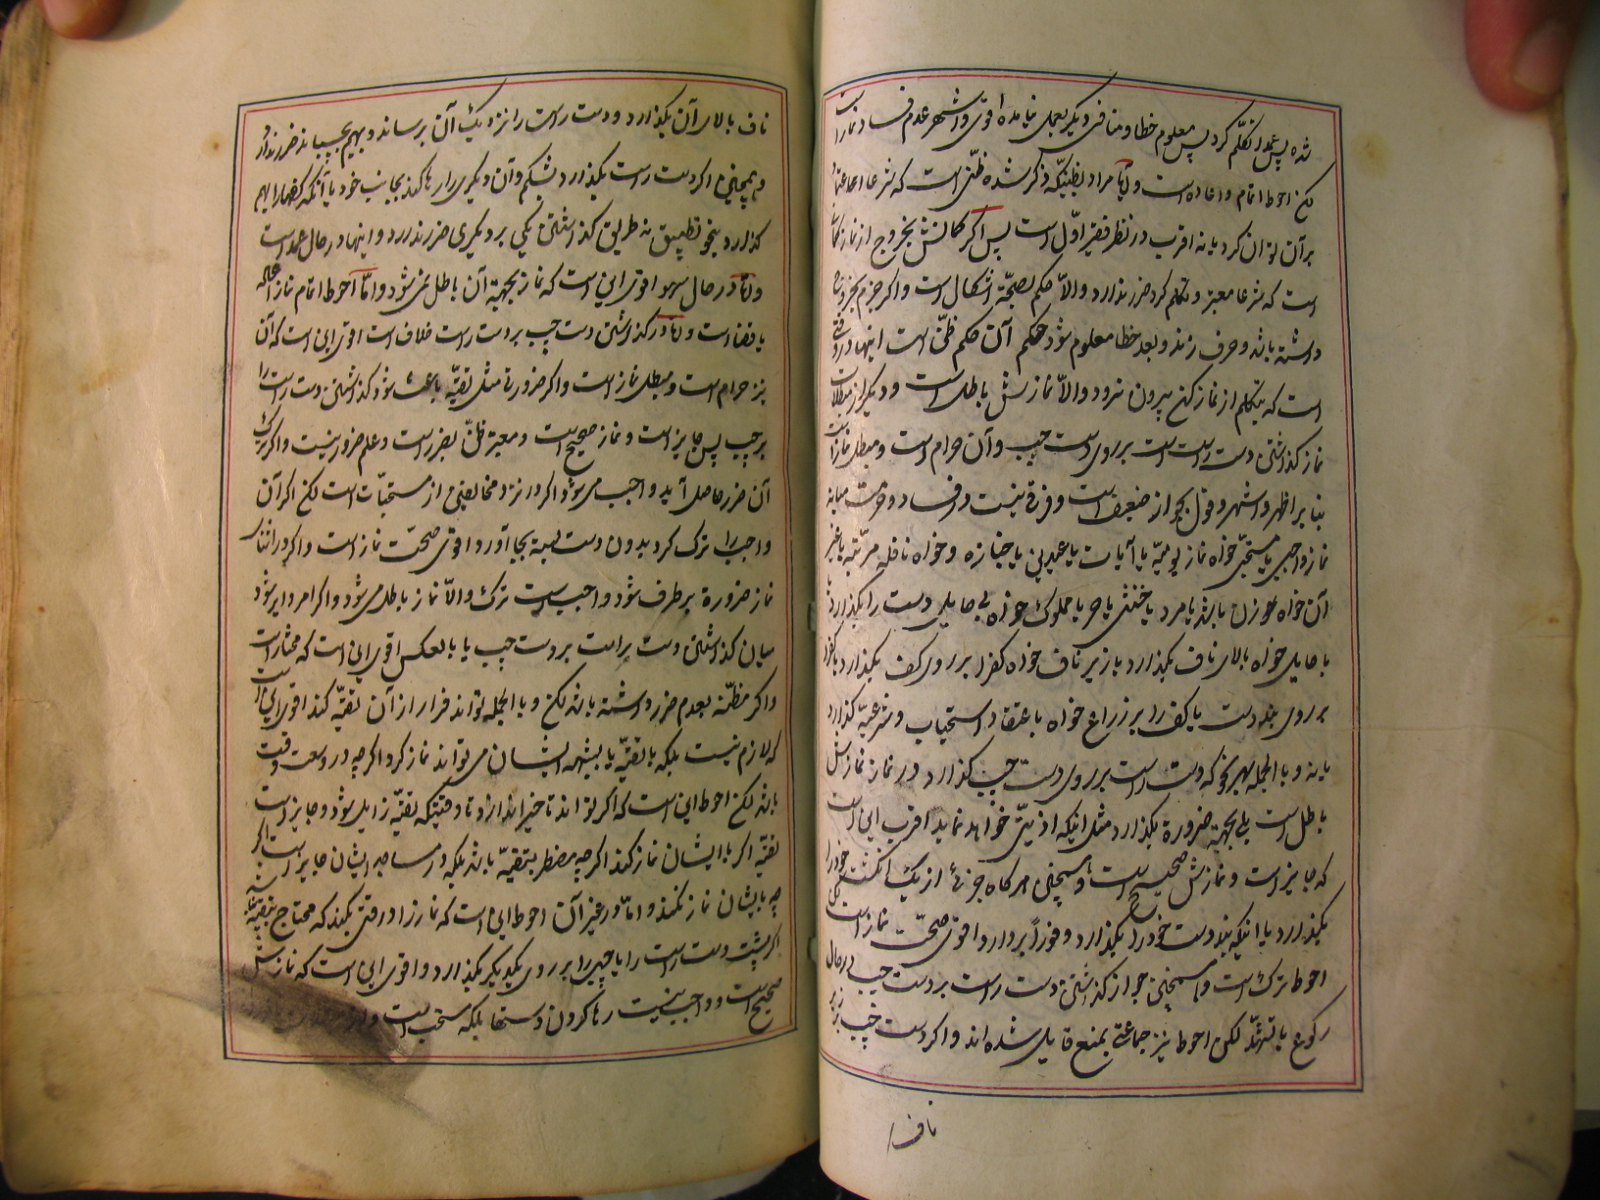 شده پس عمدا تکلّم کرد پس معلوم خطا و منافی دیگر بعمل نیامده اقوی و اشهر عدم فساد نماز است
لکن احوط اتمام و اعاده است و امّا مراد بظنّیکه ذکر شده ظنّی است که شرعا اعتماد
بر آن توان کرد یا نه اقرب در نظر فقیر اوّل است پس اگر گمانش بخروج از نماز
است که شرعا معتبر و تکلم کرد ضرر ندارد والاّ حکم بصحّة اشکال است و اگر جزم بخروج
داشته باشد و حرف زند و بعد خطا معلوم شود حکم آن حکم ظنّ است اینها در وقتی
است که بتکلم از نماز کن بیرون نرود والاّ نمازش باطل است و دیگر از مبطلات
نماز گذاشتن دست راست است بر روی دست چپ و آن حرام است و مبطل نماز است
بنا بر اظهر و اشهر و قول بجواز ضعیف است و فرق نیست در فساد و حرمت میانه
نماز واجبی یا مستحبّی خواه نماز یومیّه یا آیات یا عیدین یا جنازه و خواه نافله مرتّبه یا غیر
آن خواه بوزن باشد یا مرد یا خنثی یا حر یا مملوک خواه بی حایلی دست را بگذارد یا
با حایل خواه بالای ناف بگذارد یا زیر ناف خواه کف را بر روی کف بگذارد یا کف را
بر روی بند دست یا کف را بر زراع خواه باعتقاد استحباب و شرعیّة گذارد
یا نه و بالجمله بهر نحو که دست راست بر روی دست چپ گذارد در نماز نمازش
باطل است بلی بجهة ضرورة بگذارد مثل اینکه اذیتی خواهد نماید اقرب این است
که جایز است و نمازش صحیح است و همچنین هر گاه جزئی از یک انگشت خود را
بگذارد یا اینکه بند دست خود را بگذارد و فوراً بردارد اقوی صحّت نماز است لکن
احوط ترک است و همچنین جواز گذاشتن دست راست بر دست چپ در حال
رکوع یا تشهّد لکن احوط نیز جماعتی بمنع قایل شده اند و اگر دست چپ بر زیر
ناف
ناف بالای آن بگذارد و دست راست را نزدیک آن برساند و بهم بچسباند ضرر ندارد و
همچنین اگر دست راست بگذارد در شکم و آن دیگری را رها کند بجانب خود یا آنکه کفها را بهم
گذارد بنحو تطبیق نه طریق گذاشتن یکی بر دیگری ضرر ندارد و اینها در حال عمد است
و امّا در حال سهو اقوی این است که نماز بجهة آن باطل نمی شود و امّا احوط اتمام نماز و اعاده
یا قضا است و امّا در گذاشتن دست چپ بر دست راست خلاف است اقوی این است که آن
نیز حرام است و مبطل نماز است و اگر ضرورتی مثل تقیّه باعث شود گذاشتن دست راست را
بر چپ پس جایز است و نماز صحیح است و معتبر ظنّ بضرر است و علم ضرور نیست و اگر بترک
آن ضرر حاصل آید واجب می شود اگر در نزد مخالفین از مستحبّات است لکن اگر آن
واجب را ترک کرد بدون دست بسته بجا آورد اقوی صحّت نماز است و اگر در اثنای
نماز ضرورة بر طرف شود واجب است ترک والاّ نماز باطل می شود و اگر امر دایر شود
میان گذاشتن دست راست بر دست چپ یا بالعکس اقوی این است که مختار است
و اگر مظنّه بعدم ضرر داشته باشد لکن و بالجمله تواند فرار از آن تقیّه کند اقوی این است
که لازم نیست بلکه با تقیّه یا بشبهه ایشان می تواند نماز کرد اگر چه در وسعت وقت
باشد لکن احوط این است که اگر تواند تاخیر اندازد تا وقتیکه تقیّه زایل شود و جایز است
تقیّه اگر با ایشان نماز کند اگر چه مضطر بتقیّه باشد بلکه در مساجد ایشان جایز است اگر
چه با ایشان نماز نکند و امّا در غیر آن احوط این است که نماز را در وقتی بکند که محتاج بتقیّه نباشد
اگر پشت دست راست را یا چپ را بر روی یکدیگر بگذارد و اقوی این است که نمازش
صحیح است و واجب نیست رها کردن دستها بلکه مستحب است و